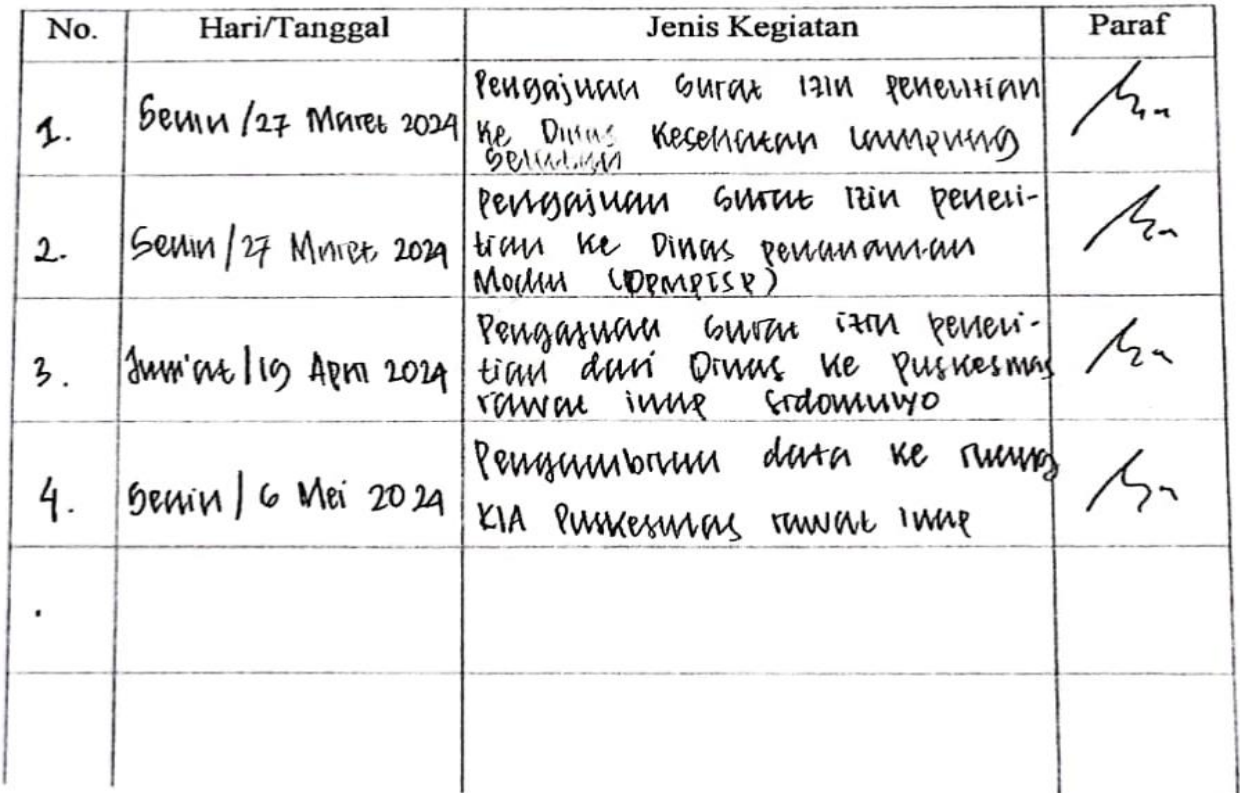 No. Hari/Tanggal Jenis Kegiatan Paraf
1. Senin / 27 Maret 2024 Pengajuan surat izin penelitian
ke Dinas Kesehatan Lampung
Selatan
2. Senin / 27 Maret 2024 Pengajuan surat izin peneli-
tian ke Dinas penanaman
Modal (DPMPTSP)
3. Jum'at / 19 April 2024 Pengajuan surat izin peneli-
tian dari Dinas ke Puskesmas
rawat inap Sidomulyo
4. Senin / 6 Mei 2024 Pengambilan data ke ruang
KIA Puskesmas rawat inap